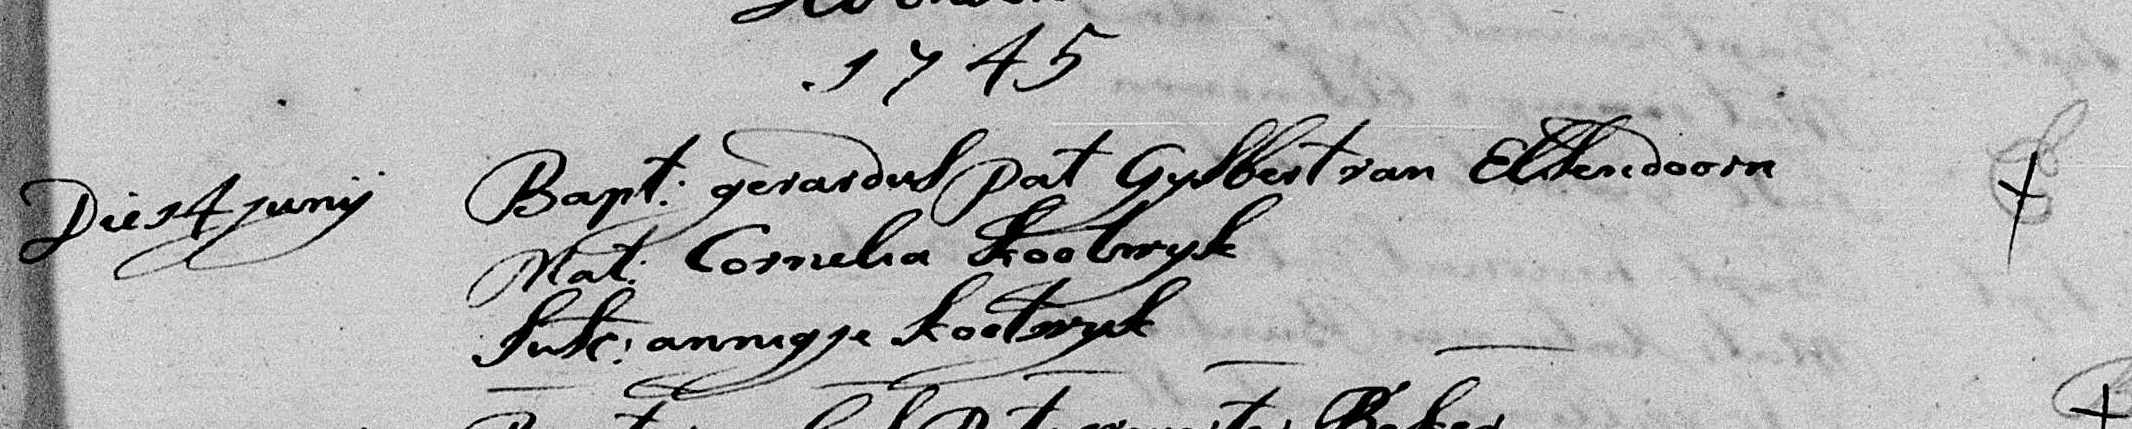 1745
Die 14 junij Bapt: gerardus pat Gysbert van Elsendoorn
Mat: Cornelia Kootwyk
Susc: annigje Kootwyk